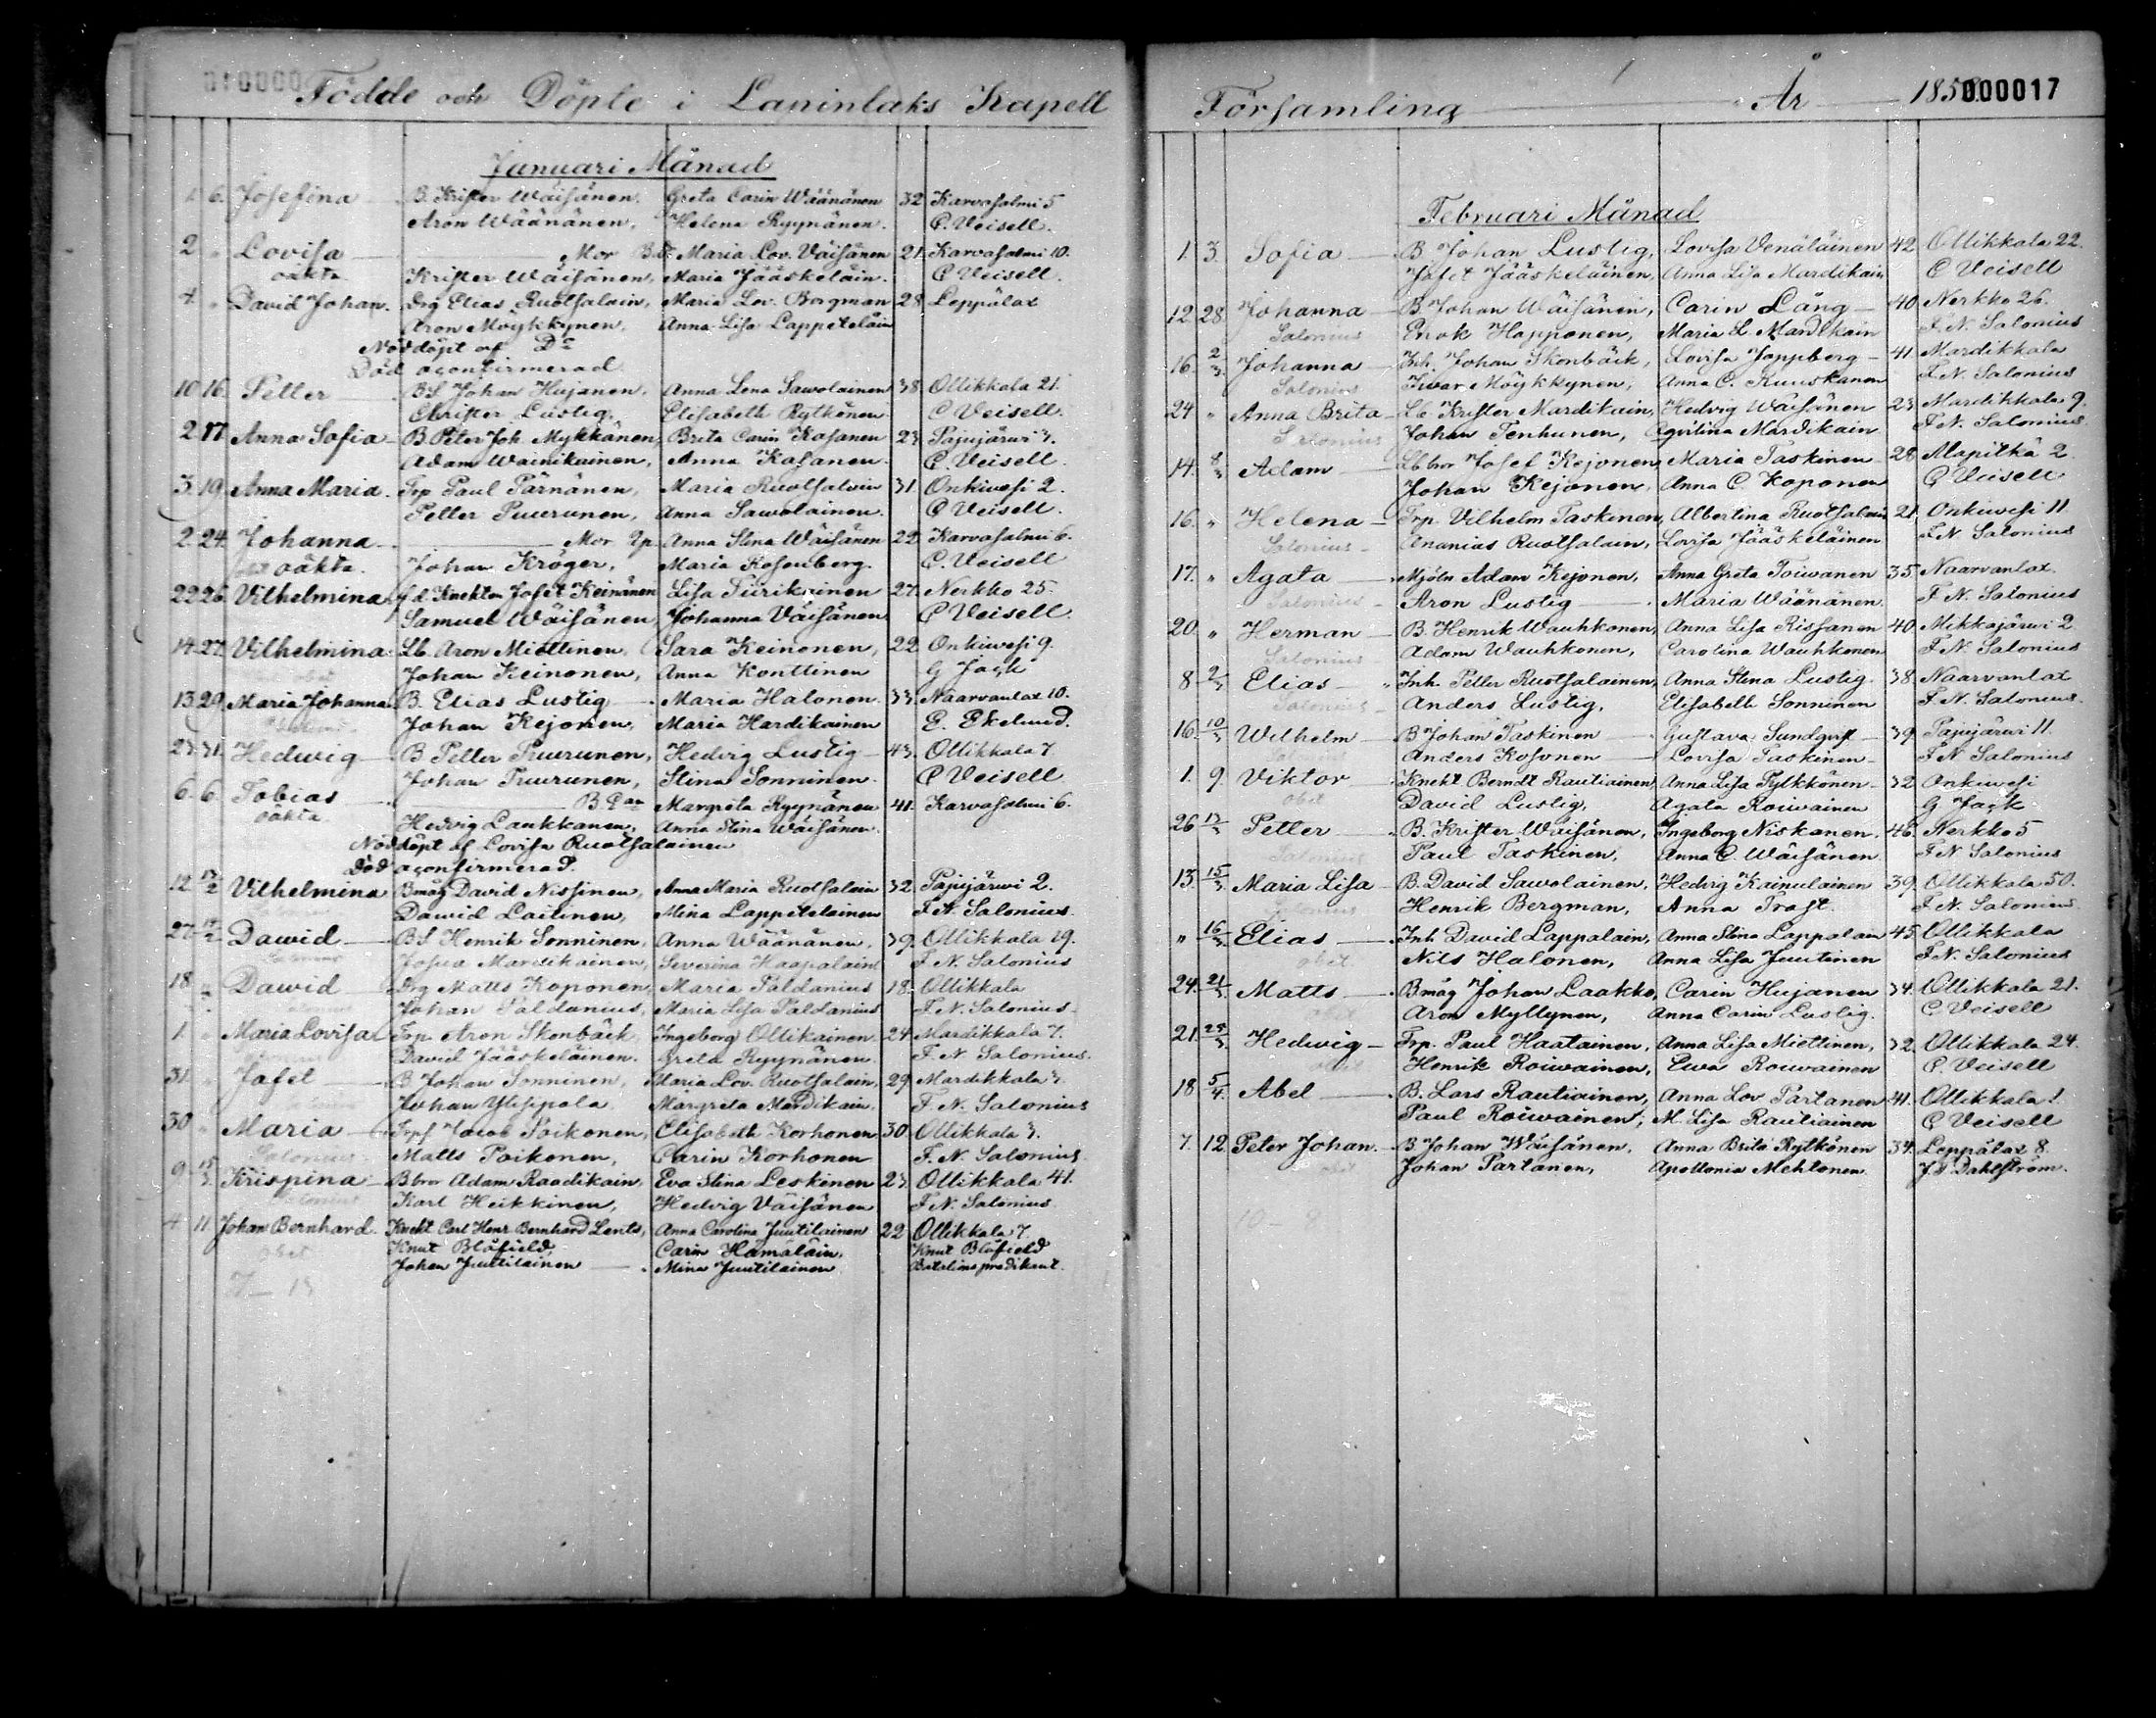 Födde och Döpte i Laninlaks Kapell
Januari Månad
1. 6. Josefina B. Krister Wäisänen. Greta Carin Wäänänen 32 Karvasalmi 5
Aron Wäänänen, Helena Ryynänen. C. Veisell.
2 " Lovisa Mor Maria Lov. Väisänen 21. Karvasalmi 10.
oäkta Krister Wäisänen, Maria Jääskeläin. C Veisell.
4. " David Johan. Drg Elias Ruotsalain, Maria Lov. Borgman 28 Leppälax
Aron Möykkynen, Anna Lisa Lappeteläin
Nöddöpt af Do
Död oconfirmerad
10 16. Petter BS Johan Hujanen, Anna Lena Sawolainen 38 Ollikkala 21.
Christer Lustig, Elisabeth Rytkönen C Veisell.
2 17 Anna Sofia B. Peter Joh. Mykkänen, Brita Carin Kosanen 23 Pajujärwi 3.
Adam Wainikainen, Anna Kosanen. C. Veisell.
3. 19. Anna Maria. Trp Paul Pärnänen, Maria Ruotsalain 31. Onkiwesi 2.
Petter Puurunen, Anna Sawolainen. C Veisell.
2. 24. Johanna Mor Anna Stina Wäisänen 22 Karvasalmi 6.
oäkta. Johan Kröger, Maria Rosenberg. C. Veisell
22 26 Vilhelmina f.d. Knekten Jafet Keinänen Lisa Tiirikainen 27. Nerkko 25.
Samuel Wäisänen, Johanna Väisänen C Veisell.
14. 27. Vilhelmina Lb. Aron Miettinen, Sara Keinonen, 22 Onkiwesi 9.
Johan Keinonen, Anna Konttinen G Jack
13 29. Maria Johanna B. Elias Lustig Maria Halonen. 33. Naarvanlax 10.
Johan Kejonen, Maria Hardikainen E. Ekelund.
23. 31. Hedwig B Petter Puurunen, Hedvig Lustig 43. Ollikkala 7
Johan Puurunen, Stina Sonninen. C Veisell
6. 6. Tobias Margreta Ryynänen 41. Karvasalmi 6.
oäkta Hedvig Laukkanen, Anna Stina Wäisänen.
Nöddöpt af Lovisa Ruotsalainen
död oconfirmerad.
12 13/2 Vilhelmina Bmåg David Nissinen, Anna Maria Ruotsalain 32 Pajujärwi 2.
Dawid Laitinen, Mina Lappeteläinen F. N. Salonius.
27. 14/2 Dawid BS Henrik Sonninen, Anna Wäänänen, 39. Ollikkala 19.
Josua Mardikainen, Severina Haapalain F. N. Salonius
18 " Dawid Drg Matts Koponen, Maria Paldanius 18. Ollikkala
Johan Paldanius, Maria Lisa Paldanius F. N. Salonius.
1. " Maria Lovisa Trp. Aron Skonbäck, Ingeborg Ollikainen 24. Mardikkala 7.
David Jääskeläinen. Greta Ryynänen. F. N. Salonius.
31. " Jafet B Johan Sonninen, Maria Lov. Ruotsalain, 29. Mardikkala 3.
Johan Ylisippola Margreta Mardikain, F. N. Salonius
30 " Maria Jacob Poikonen, Elisabeth Korhonen 30. Ollikkala 3.
Salonius. Matts Poikonen, Carin Korhonen F. N. Salonius.
9. Krispina Bbror Adam Raadikain, Eva Stina Leskinen 23. Ollikkala 41.
Karl Heikkinen, Hedvig Väisänen F. N. Salonius.
4. 11 Johan Bernhard. Knekt Carl Henr. Bernhard Lents, Anna Carolina Juutilainen 22 Ollikkala 7.
obit Knut Blåfield, Carin Hämäläin, Knut Blåfield
Johan Juutilainen Mina Juutilainen. Batalions predikant.
Församling År 1858 000017
Februari Månad
1. 3. Sofia B. Johan Lustig, Lovisa Venäläinen 42 Ollikkala 22.
Jafet Jääskeläinen, Anna Lisa Mardikain C Veisell
12. 28. Johanna B. Johan Wäisänen, Carin Lång 40. Nerkko 26.
Salonius Enok Happonen, Maria L. Mardikain F. N. Salonius
16. 2/3 Johanna Inh. Johan Skonbäck, Lovisa Jappberg 41. Mardikkala
Salonius Iwar Möykkynen, Anna C. Ruuskanen F. N. Salonius
24 " Anna Brita Lb. Krister Mardikain, Hedvig Wäisänen 23. Mardikkala 9.
Salonius Johan Tenhunen, Agvilina Mardikain F. N. Salonius.
14. Adam Lb bror Josef Kejonen, Maria Taskinen 28 Alapitkä 2.
Johan Kejonen, Anna C. Koponen C Veisell
16. " Helena Trp. Vilhelm Taskinen, Albertina Ruotsalain 21. Onkiwesi 11
Salonius Ananias Ruotsalain, Lovisa Jääskeläinen F. N Salonius
17. " Agata Mjöln Adam Kejonen, Anna Greta Toiwanen 35. Naarvanlax.
Salonius Aron Lustig Maria Wäänänen. F. N. Salonius
20. " Herman B. Henrik Wauhkonen, Anna Lisa Rissanen 40. Mikkajärwi 2
Salonius Adam Wauhkonen, Carolina Wauhkonen F. N. Salonius
8 Elias Inh. Petter Ruotsalainen, Anna Stina Lustig. 38. Naarvanlax
Salonius Anders Lustig, Elisabeth Sonninen F. N. Salonius.
16. 10/3 Wilhelm B Johan Taskinen Gustava Sundqvist 39. Pajujärwi 11.
Anders Kosonen Lovisa Taskinen F. N Salonius
1. 9. Viktor Knekt Berndt Rautiainen Anna Lisa Pylkkönen 32 Onkiwesi
obit David Lustig, Agata Rouvainen G. Jack
26 Petter B. Krister Wäisänen, Ingeborg Niskanen. 46. Nerkko 5
Salonius Paul Taskinen, Anna C. Wäisänen F. N. Salonius
13. 15/3 Maria Lisa B. David Sawolainen, Hedvig Kainulainen 39. Ollikkala 50.
Henrik Bergman, Anna Trast. F. N. Salonius.
" 16/3 Elias Inh David Lappalain, Anna Stina Lappalain 45. Ollikkala
obit Nils Halonen, Anna Lisa Juutinen F. N. Salonius
24. 21/3 Matts Bmåg Johan Laakko, Carin Hujanen 34. Ollikkala 21.
obit Aron Myllynen, Anna Carin Lustig. C Veisell
21. 25/3 Hedwig Trp. Paul Haatainen, Anna Lisa Miettinen, 32. Ollikkala 24.
Henrik Roiwainen, Ewa Rouwainen C. Veisell
18 5/4. Abel B. Lars Rautiainen, Anna Lov Partanen 41. Ollikkala
Paul Roiwainen; M. Lisa Rautiainen C Veisell
7. 12. Peter Johan B Johan Wäisänen, Anna Brita Rytkönen 34. Leppälax 8
obit Johan Partanen, Apollonia Mehtonen J. F. Dahlström.
10 9